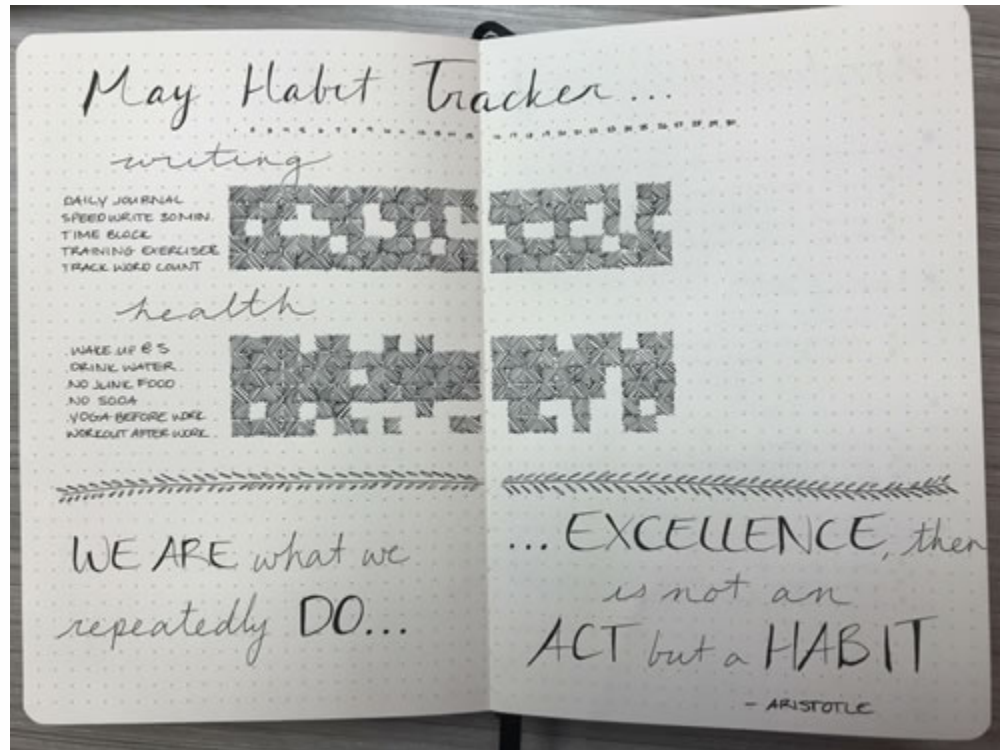 May Habit Tracker...
writing
DAILY JOURNAL
SPEEDWRITE 30MIN.
TIME BLOCK
TRAINING EXERCISES
TRACK WORD COUNT
health
WAKE UP @ 5
DRINK WATER
NO JUNK FOOD
NO SODA
YOGA BEFORE WORK
WORKOUT AFTER WORK
WE ARE what we
repeatedly DO...
... EXCELLENCE, then
is not an
ACT but a HABIT
- ARISTOTLE